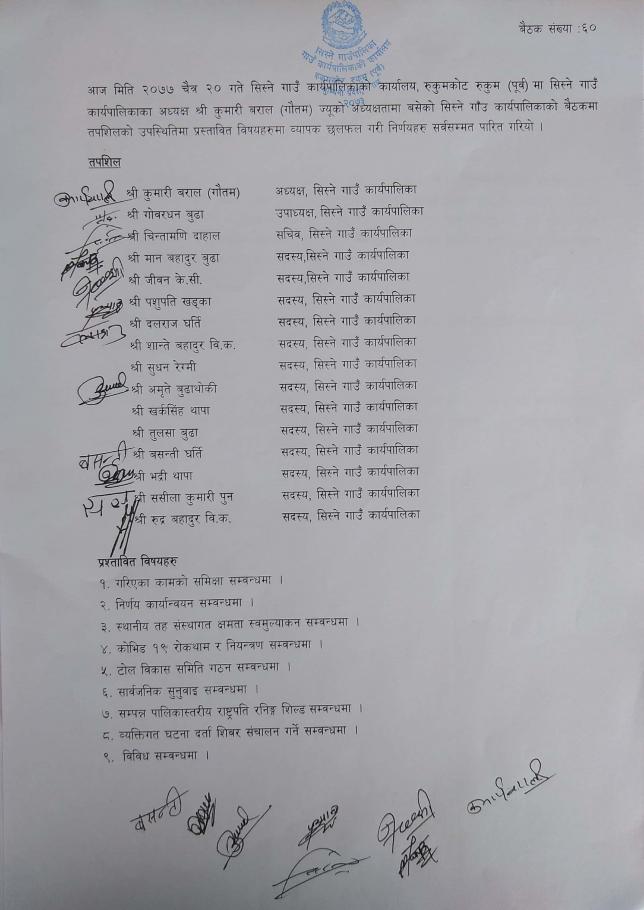 बैठक संख्या :६०
सिस्ने गाउँपालिका
गाउँ कार्यपालिकाको कार्यालय
आज मिति २०७७ चैत्र २० गते सिस्ने गाउँ कार्यपालिकाको कार्यालय, रुकुमकोट रुकुम (पूर्व) मा सिस्ने गाउँ
कार्यपालिकाका अध्यक्ष श्री कुमारी बराल (गौतम) ज्यूको अध्यक्षतामा बसेको सिस्ने गाँउ कार्यपालिकाको बैठकमा
तपशिलको उपस्थितिमा प्रस्तावित विषयहरुमा व्यापक छलफल गरी निर्णयहरु सर्वसम्मत पारित गरियो ।
तपशिल
श्री कुमारी बराल (गौतम) अध्यक्ष, सिस्ने गाउँ कार्यपालिका
श्री गोवरधन बुढा उपाध्यक्ष, सिस्ने गाउँ कार्यपालिका
श्री चिन्तामणि दाहाल सचिव, सिस्ने गाउँ कार्यपालिका
श्री मान बहादुर बुढा सदस्य,सिस्ने गाउँ कार्यपालिका
श्री जीवन के.सी. सदस्य,सिस्ने गाउँ कार्यपालिका
श्री पशुपति खड्का सदस्य, सिस्ने गाउँ कार्यपालिका
श्री दलराज घर्ति सदस्य, सिस्ने गाउँ कार्यपालिका
श्री शान्ते बहादुर वि.क. सदस्य, सिस्ने गाउँ कार्यपालिका
श्री सुधन रेग्मी सदस्य, सिस्ने गाउँ कार्यपालिका
श्री अमृते बुढाथोकी सदस्य, सिस्ने गाउँ कार्यपालिका
श्री खर्कसिंह थापा सदस्य, सिस्ने गाउँ कार्यपालिका
श्री तुलसा बुढा सदस्य, सिस्ने गाउँ कार्यपालिका
बसन्ती श्री बसन्ती घर्ति सदस्य, सिस्ने गाउँ कार्यपालिका
श्री भद्री थापा सदस्य, सिस्ने गाउँ कार्यपालिका
श्री ससीला कुमारी पुन सदस्य, सिस्ने गाउँ कार्यपालिका
श्री रुद्र बहादुर वि.क. सदस्य, सिस्ने गाउँ कार्यपालिका
प्रश्तावित विषयहरु
१. गरिएका कामको समिक्षा सम्वन्धमा ।
२. निर्णय कार्यान्वयन सम्वन्धमा ।
३. स्थानीय तह संस्थागत क्षमता स्वमुल्याकन सम्वन्धमा ।
४. कोभिड १९ रोकथाम र नियन्त्रण सम्वन्धमा ।
५. टोल विकास समिति गठन सम्वन्धमा ।
६. सार्वजनिक सुनुवाइ सम्वन्धमा ।
७. सम्पन्न पालिकास्तरीय राष्ट्रपति रनिङ्ग शिल्ड सम्वन्धमा ।
८. व्यक्तिगत घटना दर्ता शिवर संचालन गर्ने सम्वन्धमा ।
९. विविध सम्वन्धमा ।
बसन्ती